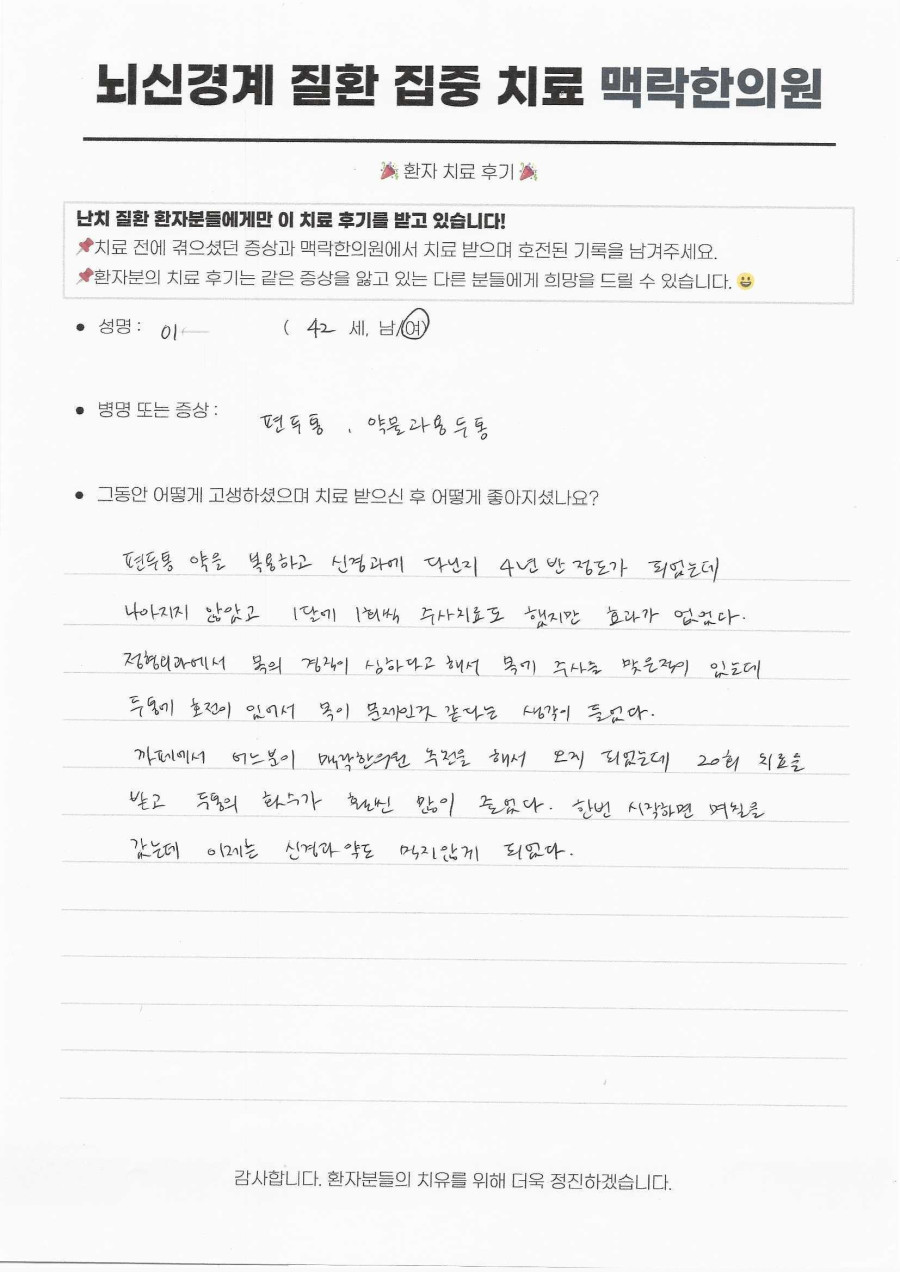 뇌신경계 질환 집중 치료 맥락한의원
🎉환자 치료 후기🎉
난치 질환 환자분들에게만 이 치료 후기를 받고 있습니다!
📌치료 전에 겪으셨던 증상과 맥락한의원에서 치료 받으며 호전된 기록을 남겨주세요.
📌환자분의 치료 후기는 같은 증상을 앓고 있는 다른 분들에게 희망을 드릴 수 있습니다.😀
● 성명 : 이 ( 42 세, 남/여)
● 병명 또는 증상 : 편두통, 약물과용두통
● 그동안 어떻게 고생하셨으며 치료 받으신 후 어떻게 좋아지셨나요?
편두통 약을 복용하고 신경과에 다닌지 4년 반 정도가 되었는데
나아지지 않았고 1달에 1회씩 주사치료도 했지만 효과가 없었다.
정형외과에서 목의 경직이 심하다고 해서 목에 주사를 맞은적이 있는데
두통에 호전이 있어서 목이 문제인것 같다는 생각이 들었다.
까페에서 어느분이 맥락한의원 추천을 해서 오게 되었는데 20회 치료를
받고 두통의 횟수가 훨씬 많이 줄었다. 한번 시작하면 며칠을
갔는데 이제는 신경과 약도 먹지않게 되었다.
감사합니다. 환자분들의 치유를 위해 더욱 정진하겠습니다.